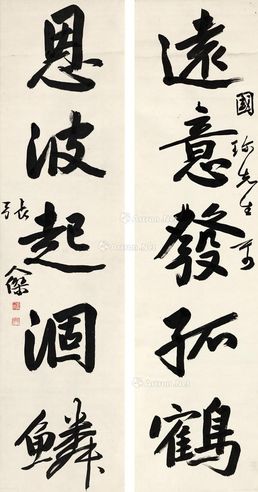 國珍先生正
遠意發孤鶴
恩波起涸鱗
張人傑
Artron.Net
Artron.Net